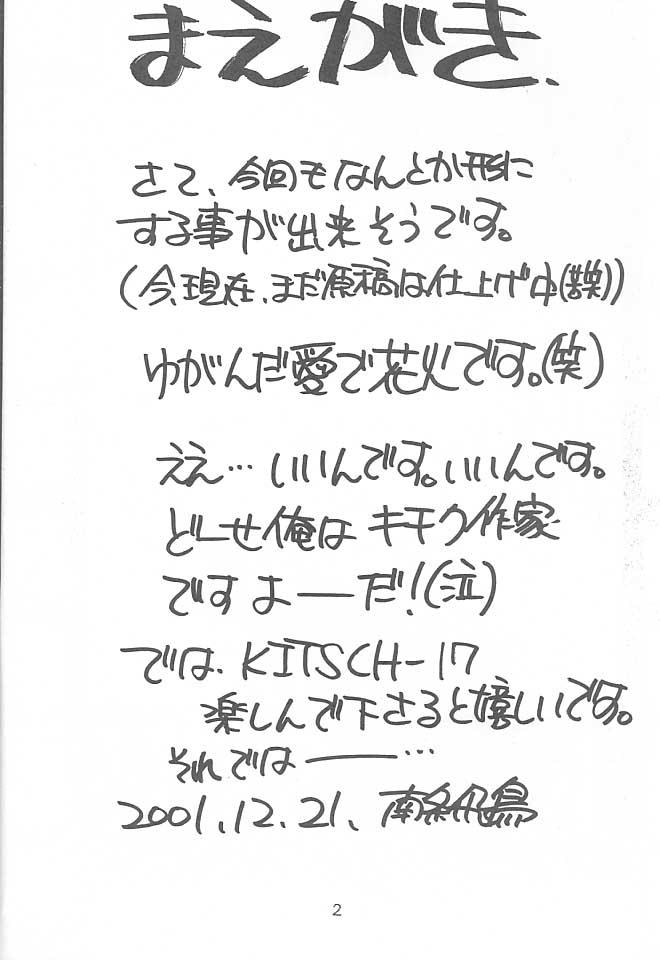 まえがき、
さて、今回もなんとか形に
する事が出来そうです。
(今、現在、まだ原稿は仕上げ中(苦笑))
ゆがんだ愛で花火です。(笑)
ええ…いいんです。いいんです。
どーせ俺はキモク作家
ですよーだ!(泣)
では、KITSCH-17
楽しんで下さると嬉しいです。
それでは――…
2001.12.21、南条飛鳥
2